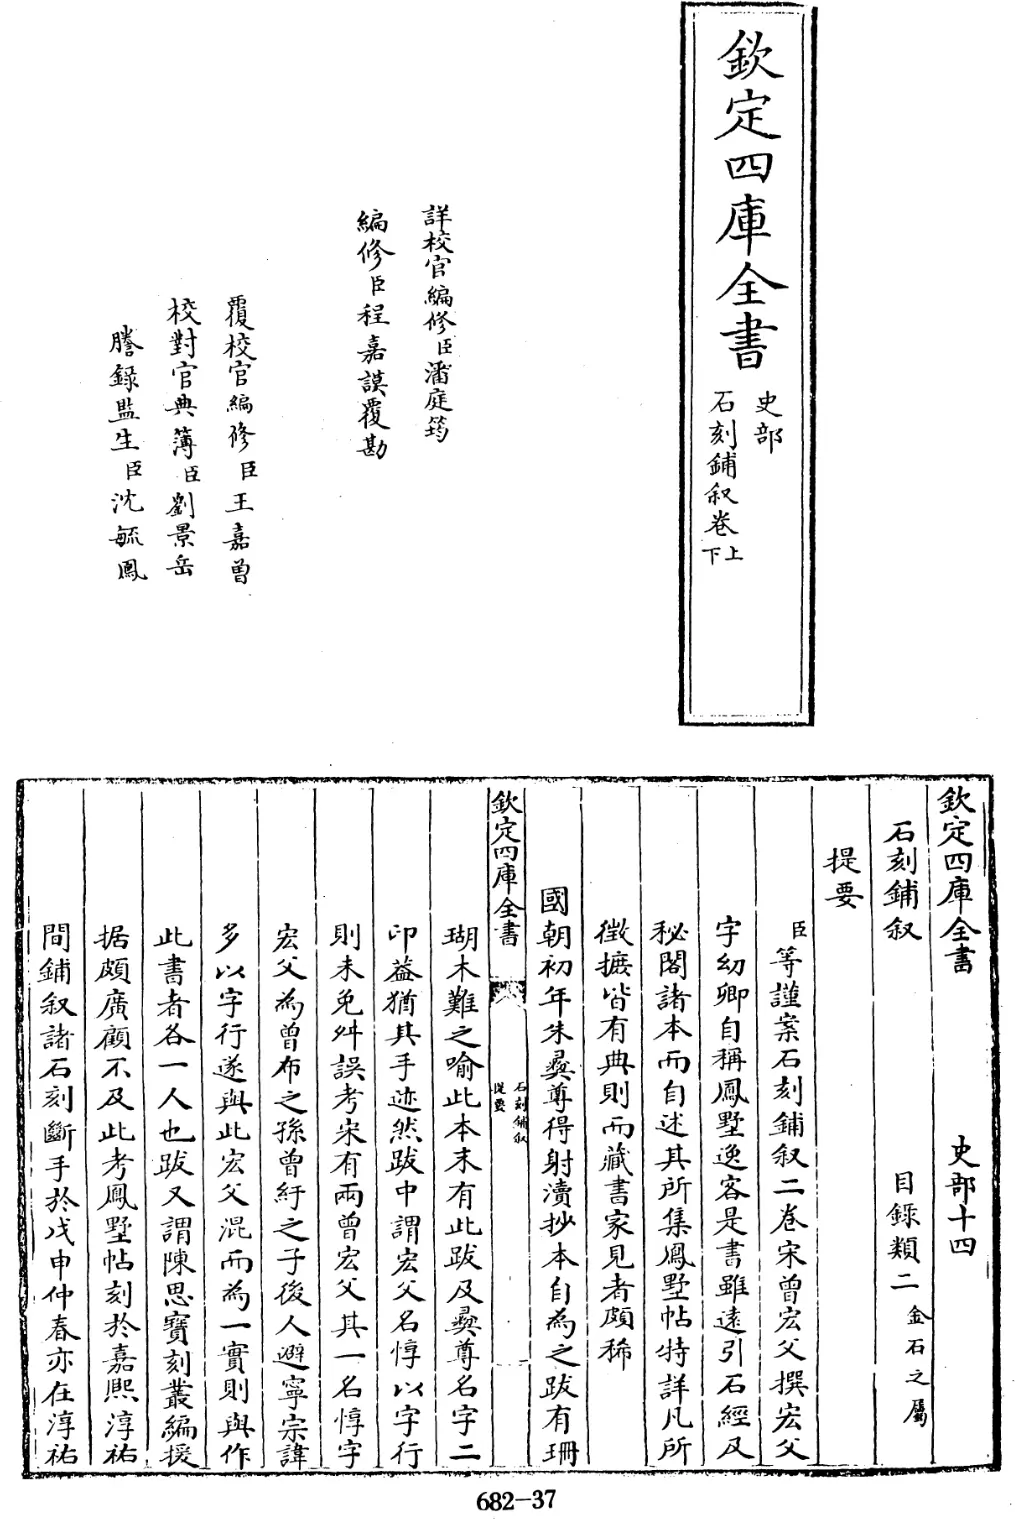 欽定四庫全書
史部
石刻鋪叙卷上下
詳校官編修臣潘庭筠
編修臣程嘉謨覆勘
覆校官編修臣王嘉曽
校對官典簿臣劉景岳
謄錄監生臣沈毓鳳
欽定四庫全書 史部十四
石刻鋪叙 目錄類二金石之屬
提要
臣等謹案石刻鋪叙二卷宋曾宏父撰宏父
字幼卿自稱鳳墅逸客是書雖逺引石經及
秘閣諸本而自述其所集鳳墅帖特詳凡所
徴摭皆有典則而藏書家見者頗稀
國朝初年朱彛尊得射瀆抄本自為之跋有珊
欽定四庫全書
石刻鋪叙
提要
瑚木難之喻此本末有此跋及彛尊名字二
印葢猶其手迹然跋中謂宏父名惇以字行
則未免舛誤考宋有兩曾宏父其一名惇字
宏父為曾布之孫曾紆之子後人避寧宗諱
多以字行遂與此宏父混而為一實則與作
此書者各一人也跋又謂陳思寶刻叢編援
据頗廣顧不及此考鳳墅帖刻於嘉熙淳祐
間鋪叙諸石刻斷手於戊申仲春亦在淳祐
682-37